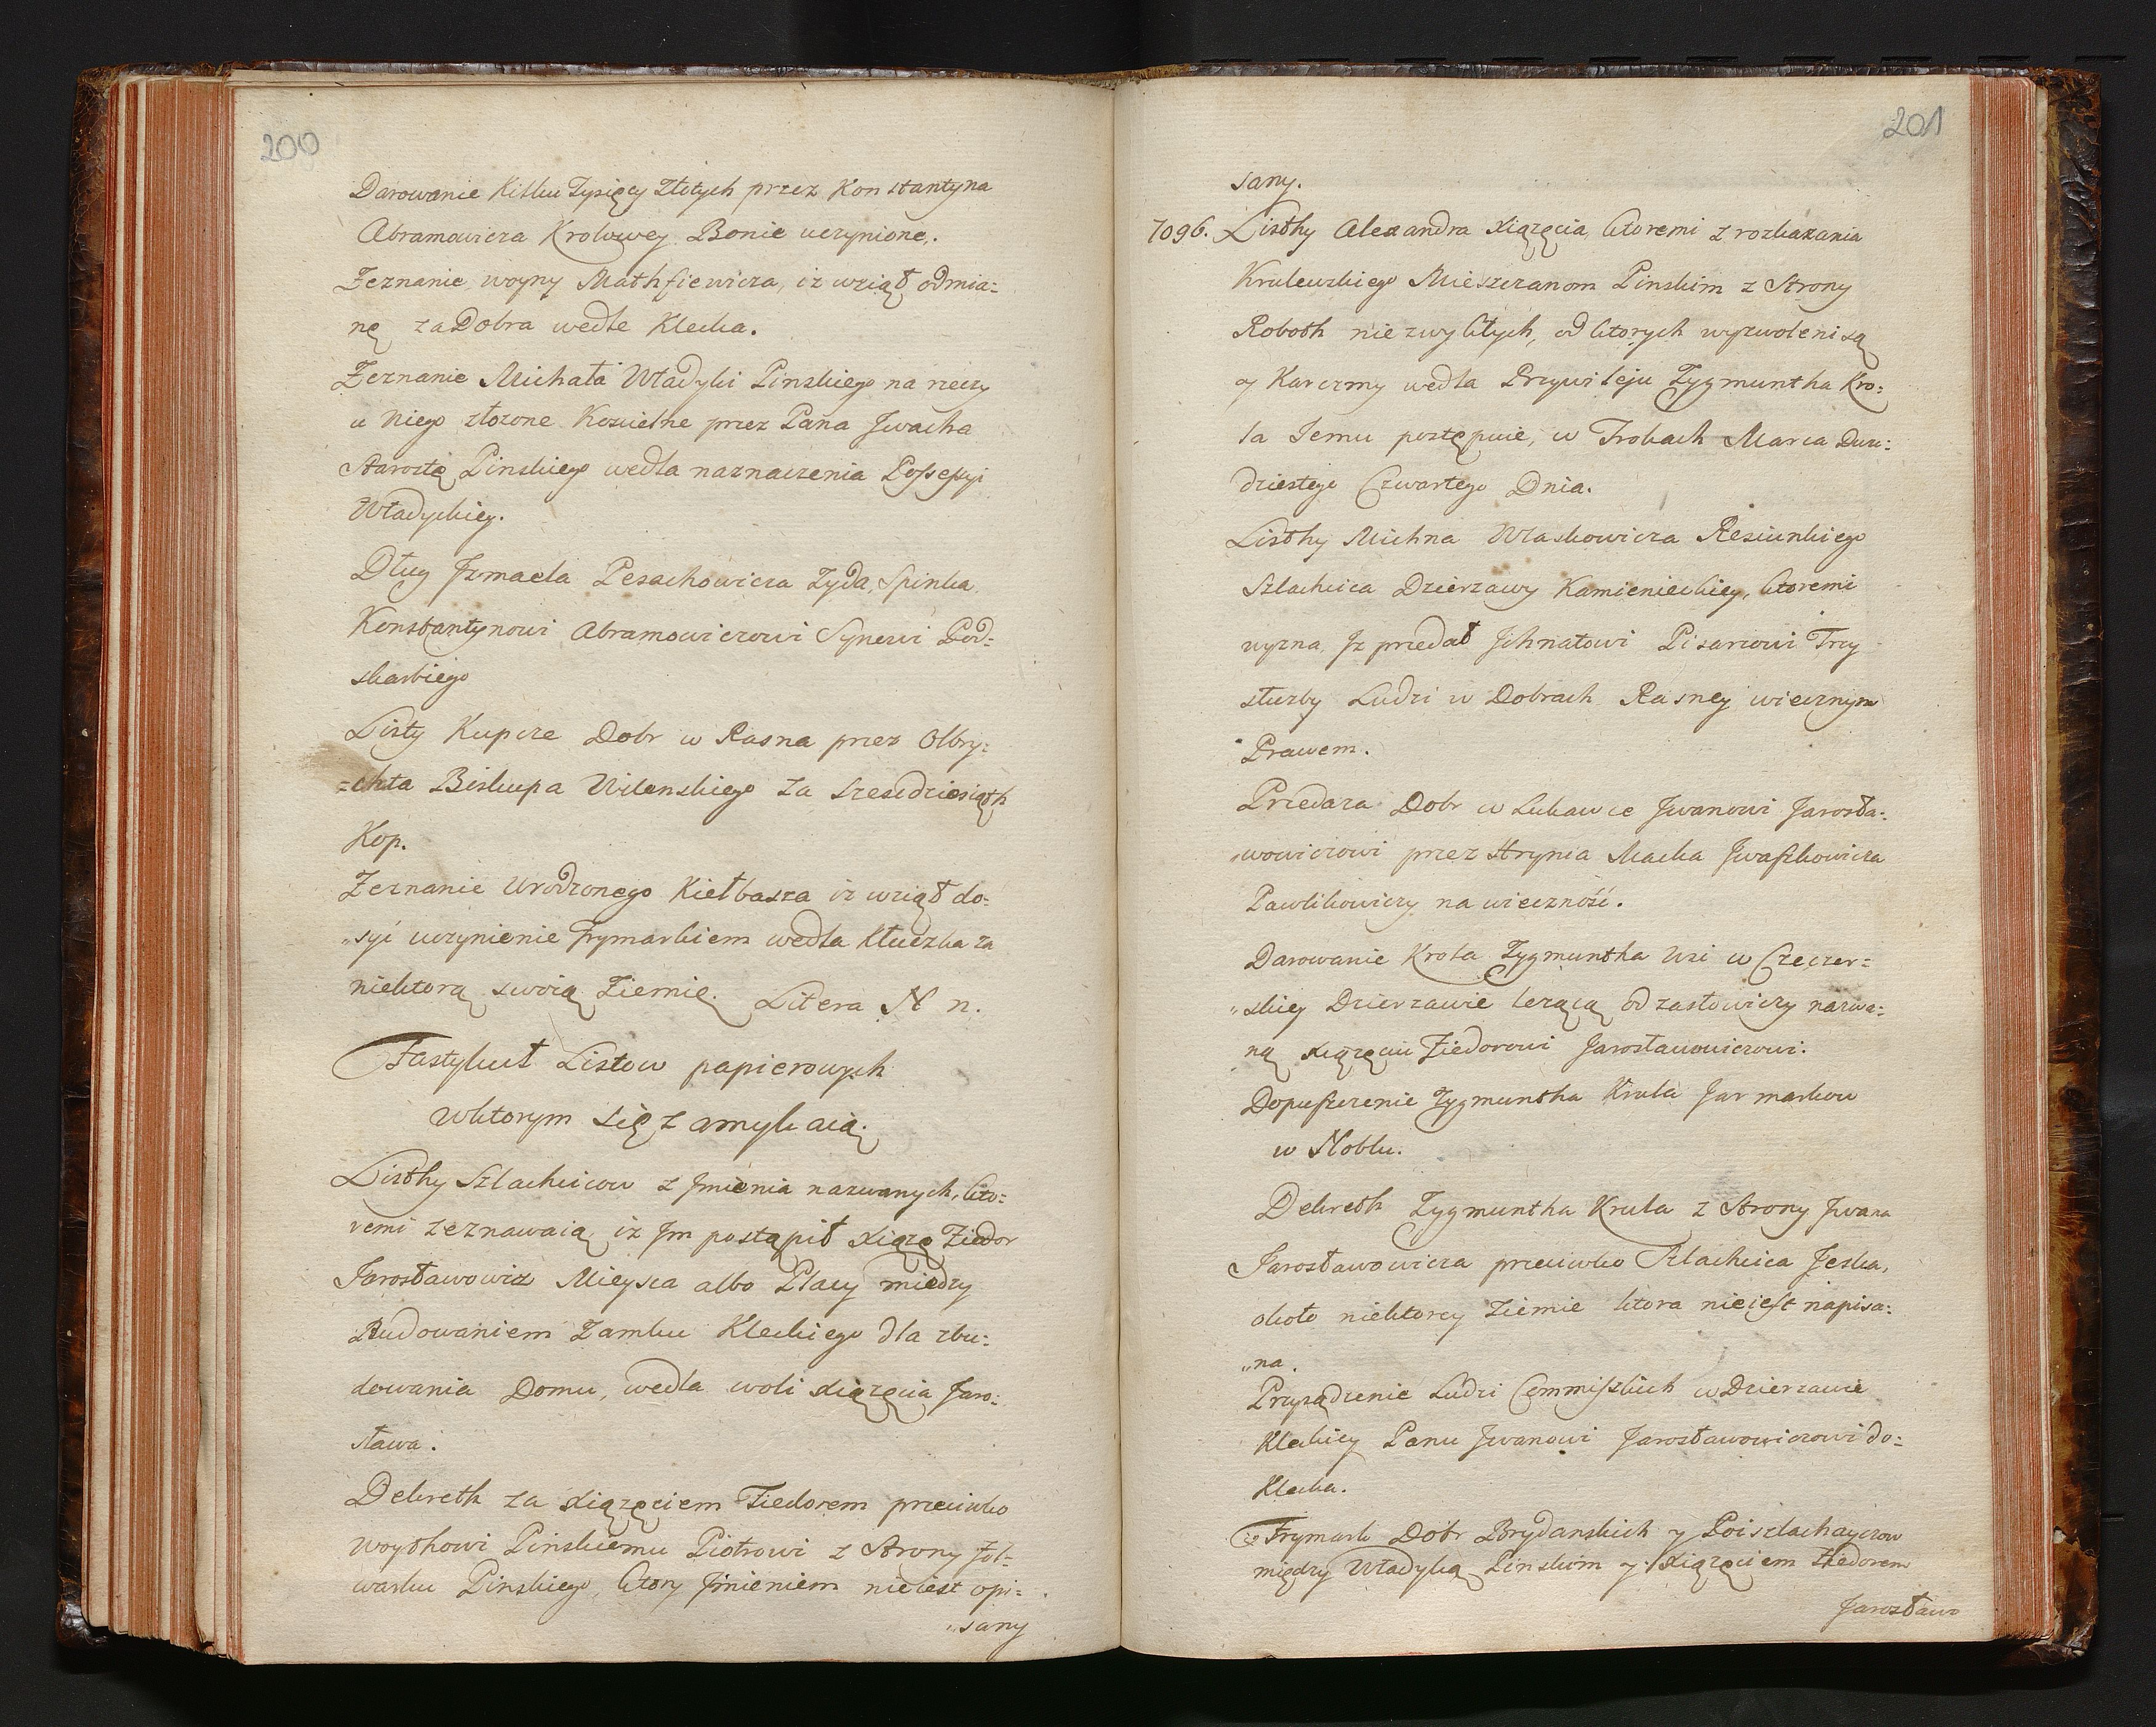 200
Darowanie Kilku Tysięcy Złotych przez Konstantyna
Abramowicza Krolowey Bonie uczynione.
Zeznanie woyny Mathfiewicza, iż wziął odmia:
nę za Dobra wedle Klecka.
Zeznanie Michała Władyki Pinskiego na rzeczy
u niego złożone Koscielne przez Pana Jwacha
Starostę Pinskiego wedla naznaczenia Possessyi
Władyckiey.
Dług Jzmaela Pesachowicza Zyda, Spinka
Konstantynowi Abramowiczowi Synowi Pod:
skarbiego
Listy Kupcze Dobr w Rasna przez Olbry:
=chta Biskupa Wilenskiego za szesdziesiąth
Kop.
Zeznanie Urodzonego Kiełbasza iż wziął do:
„syć uczynienie frymarkiem wedla Kłuczka za
niektorą swoią Ziemię. Litera N n.
Fastykuł Listow papierowych
wktorym się zamykaią.
Listhy Szlachcicow z Jmienia nazwanych, kto:
remi zeznawaią iż Jm postąpił Xiążę Fiedor
Jarosławowicz Mieysca albo Placy między
Budowaniem Zamku Kleckiego dla zbu:
dowania Domu, wedla woli Xiążęcia Jaro:
sława.
Dekreth za Xiążęciem Fiedorem przeciwko
woythowi Pinskiemu Piotrowi z Strony fol:
warku Pinskiego, ktory Jmieniem nieiest opi:
„sany
201
sany.
7096. Listhy Alexandra Xiążęcia, ktoremi z rozkazania
Krulewskiego Mieszczanom Pinskim z Strony
Roboth niezwykłych, od ktorych wyzwoleni są
y Karczmy wedla Przywileju Zygmuntha Kro:
la Jemu postępuie, w Trokach Marca Dwu:
dziestego Czwartego Dnia.
Listhy Michna Wlaskowicza
Szlachcica Dzierzawy Kamienieckiey, ktoremi
wyzna Jż przedał Jchnatowi Pisarzowi Trzy
służby Ludzi w Dobrach Rasney wiecznym
Prawem.
Przedaża Dobr w Lukawce Jwanowi Jarosła:
„wowiczowi przez Hrynia Macka Jwaszkowicza
Pawlikowiczy na wieczność.
Darowanie Krola Zygmuntha Wsi w Czeczer=
„skiey Dzierzawie leżącą od zasłowiczy nazwa:
ną Xiążęciu Fiedorowi Jarosławowiczowi.
Dopuszczenie Zygmuntha Krula Jarmarkow
w Noblu.
Dekreth Zygmuntha Krula z Strony Jwana
Jarosławowicza przeciwko Szlachcica Jeska,
około niektorey Ziemie ktora nieiest napisa:
„na.
Przysądzenie Ludzi Commisskich w Dzierzawie
Kleckiey Panu Jwanowi Jarosławowiczowi do:
Klecka.
Frymark Dobr Brydanskich y Poiszlachayczow
między Władyką Pinskim y Xiążęciem Fiedorem
Jarosławo